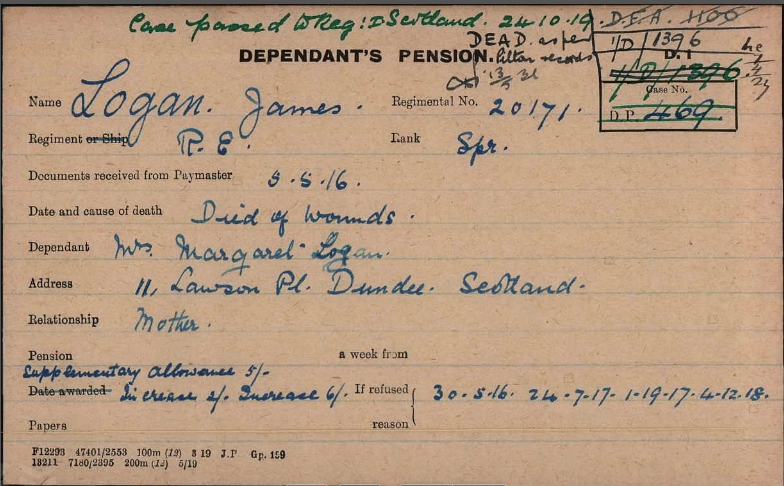 Case passed to Reg: D Scotland. 24.10.19
D.E.A. 1100
DEAD. as per
DEPENDANT'S PENSION.
1/D/1396
D.1
1/D/1396.
Case No.
D.P. 469.
Name Logan. James. Regimental No. 20171.
Regiment or Ship R.E. Rank Spr.
Documents received from Paymaster 5.5.16.
Date and cause of death Died of Wounds.
Dependant Mrs. Margaret Logan.
Address 11, Lawson Pl. Dundee. Scotland.
Relationship Mother.
Pension a week from
Supplementary Allowance 5/-
Date awarded Increase 2/- Increase 6/- If refused 30.5.16. 24-7-17- 1-19-17. 4-12.18.
Papers reason
F12293 47401/2553 100m (12) 3 19 J.P Gp. 159
13211 7180/2395 200m (12) 5/19